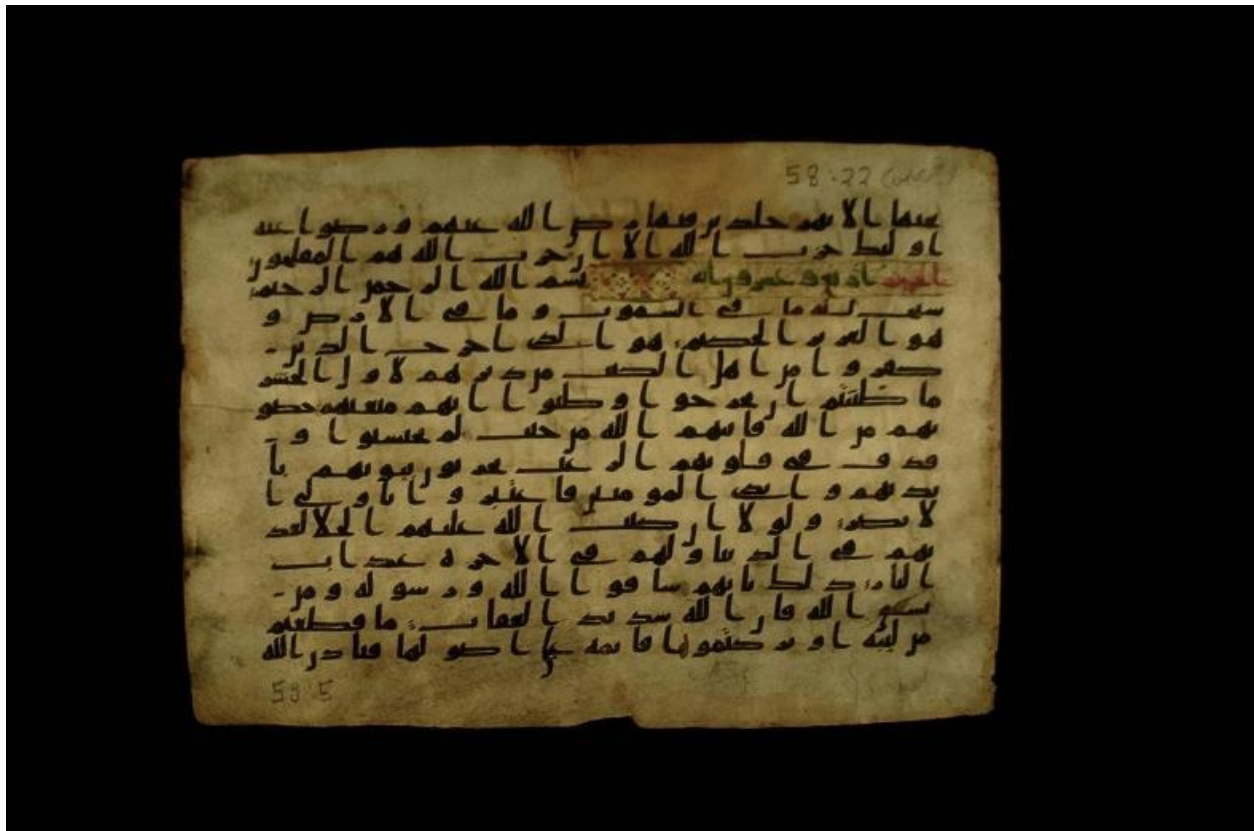 58.22
تحتها الانهر خلدين فيها رضي الله عنهم ورضوا عنه
اولئك حزب الله الا ان حزب الله هم المفلحون
بسم الله الرحمن الرحيم
سبح لله ما في السموت وما في الارض و
هو العزيز الحكيم هو الذي اخرج الذين
كفروا من اهل الكتب من ديرهم لاول الحشر
ما ظننتم ان يخرجوا وظنوا انهم منعتهم حصو
نهم من الله فاتيهم الله من حيث لم يحتسبوا و
قذف في قلوبهم الرعب يخربون بيوتهم با
يديهم وايدي المومنين فاعتبروا ياولي ا
لابصر ولولا ان كتب الله عليهم الجلا لعذ
بهم في الدنيا ولهم في الاخرة عذاب
النار ذلك بانهم شاقوا الله ورسوله ومن
يشاق الله فان الله شديد العقاب ما قطعتم
من لينة او تركتموها قايمة على اصولها فباذن الله
59.5